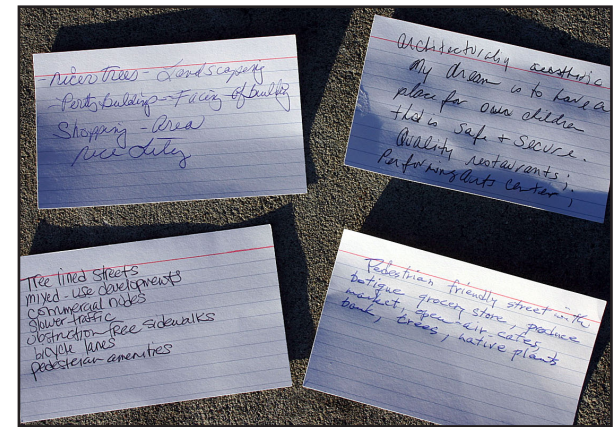 nicer trees - Landscaping
Shopping - area
nice
architecturally aesthetic
My dream is to have a
place for our children
that is safe + secure.
Quality restaurants;
Performing arts center;
Tree lined streets
mixed-use developments
commercial nodes
slower traffic
obstruction free sidewalks
bicycle lanes
pedesterian amenities
Pedestrian friendly street with
botique grocery store, produce
market, open air cafes,
bank, trees, native plants